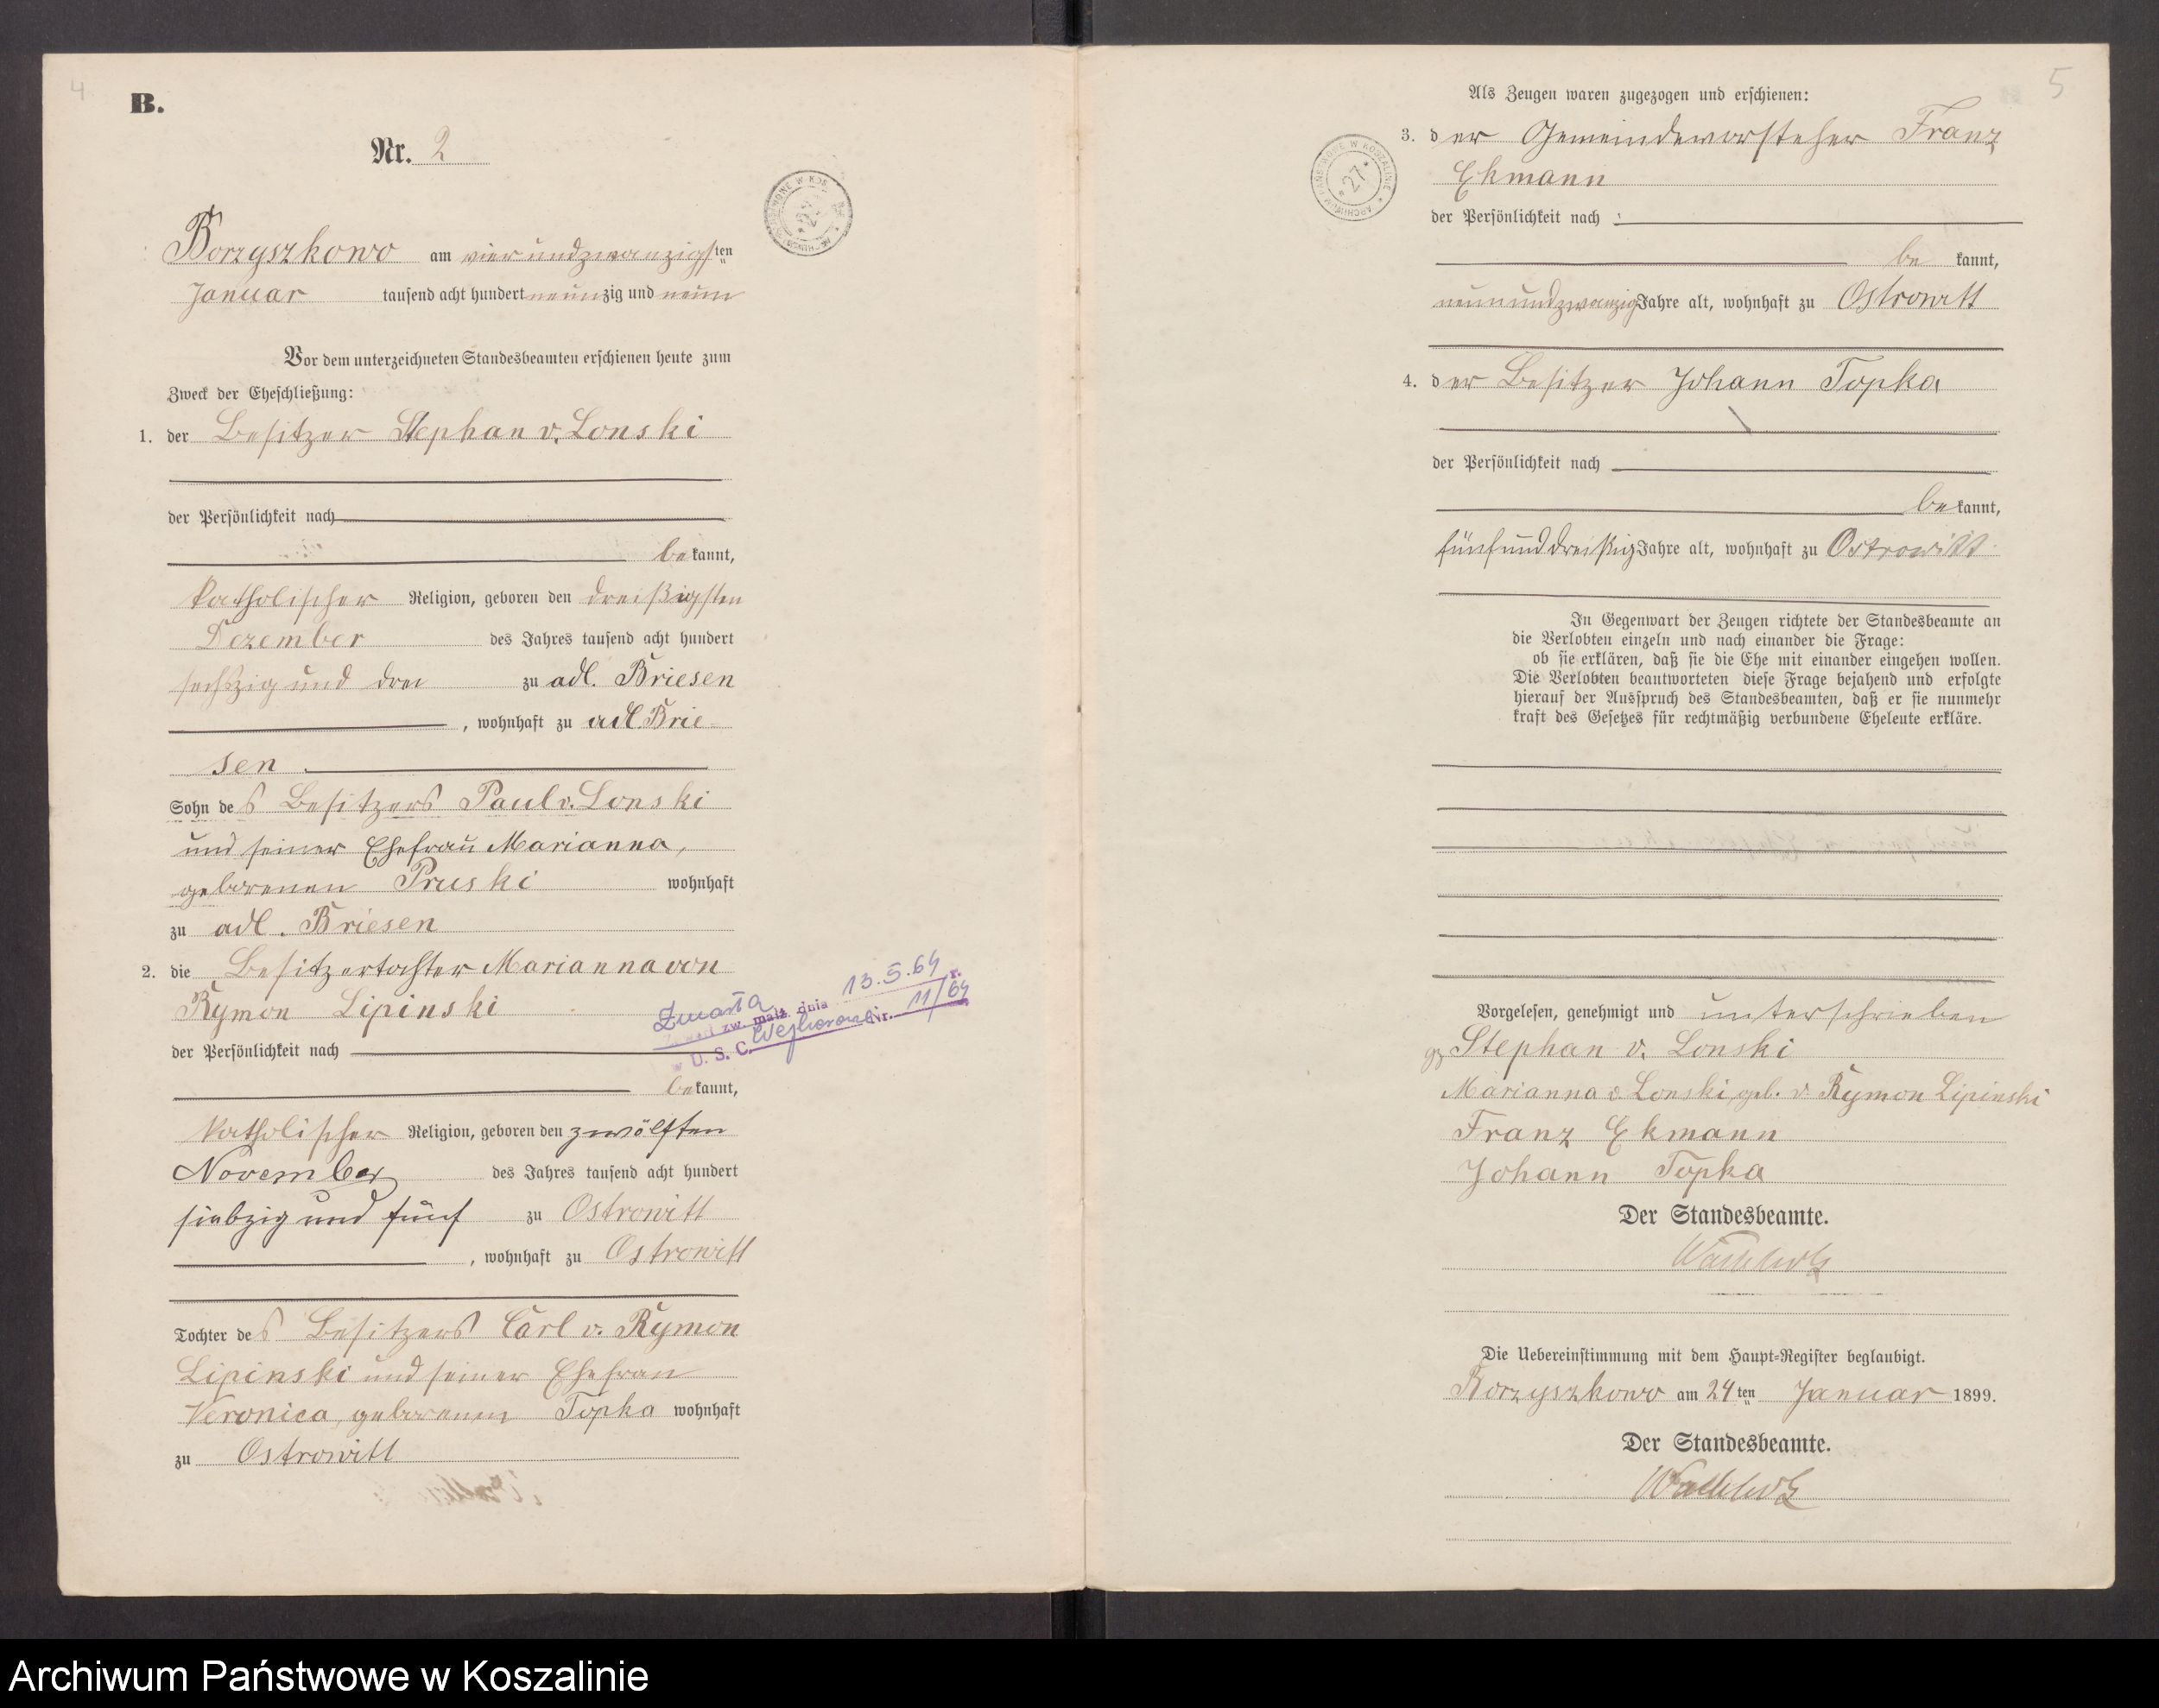 4
B.
Nr. 2
Borzyszkowo am vierundzwanzigsten
Januar tausend acht hundert neunzig und neun
Vor dem unterzeichneten Standesbeamten erschienen heute zum
Zweck der Eheschließung:
1. der Besitzer Stephan v. Lonski
der Persönlichkeit nach
bekannt,
katholischer Religion, geboren den dreißigsten
Dezember des Jahres tausend acht hundert
sechszig und drei zu adl. Briesen
, wohnhaft zu adl. Brie-
sen
Sohn des Besitzers Paul v. Lonski
und seiner Ehefrau Marianna,
geborenen Pruski wohnhaft
zu adl. Briesen
2. die Besitzertochter Marianna von
Rymon Lipinski
der Persönlichkeit nach
bekannt,
katholischer Religion, geboren den zwölften
November des Jahres tausend acht hundert
siebzig und fünf zu Ostrowitt
, wohnhaft zu Ostrowitt
Tochter des Besitzers Carl v. Rymon
Lipinski und seiner Ehefrau
Veronica, geborenen Topka wohnhaft
zu Ostrowitt
Zmarła
zw. małż. dnia 13.5.64 r.
w U. S. C. Wejherowo Nr. 11/64
5
Als Zeugen waren zugezogen und erschienen:
ARCHIWUM PAŃSTWOWE W KOSZALINIE
* 27 *
3. der Gemeindevorsteher Franz
Ekmann
der Persönlichkeit nach
be kannt,
neunundzwanzig Jahre alt, wohnhaft zu Ostrowitt
4. der Besitzer Johann Topka
der Persönlichkeit nach
bekannt,
fünfunddreißig Jahre alt, wohnhaft zu Ostrowitt
In Gegenwart der Zeugen richtete der Standesbeamte an
die Verlobten einzeln und nach einander die Frage:
ob sie erklären, daß sie die Ehe mit einander eingehen wollen.
Die Verlobten beantworteten diese Frage bejahend und erfolgte
hierauf der Ausspruch des Standesbeamten, daß er sie nunmehr
kraft des Gesetzes für rechtmäßig verbundene Eheleute erkläre.
Vorgelesen, genehmigt und unterschrieben
gz Stephan v. Lonski
Marianna v Lonski, geb. v Rymon Lipinski
Franz Ekmann
Johann Topka
Der Standesbeamte.
Die Uebereinstimmung mit dem Haupt-Register beglaubigt.
Borzyszkowo am 24ten Januar 1899.
Der Standesbeamte.
Archiwum Państwowe w Koszalinie